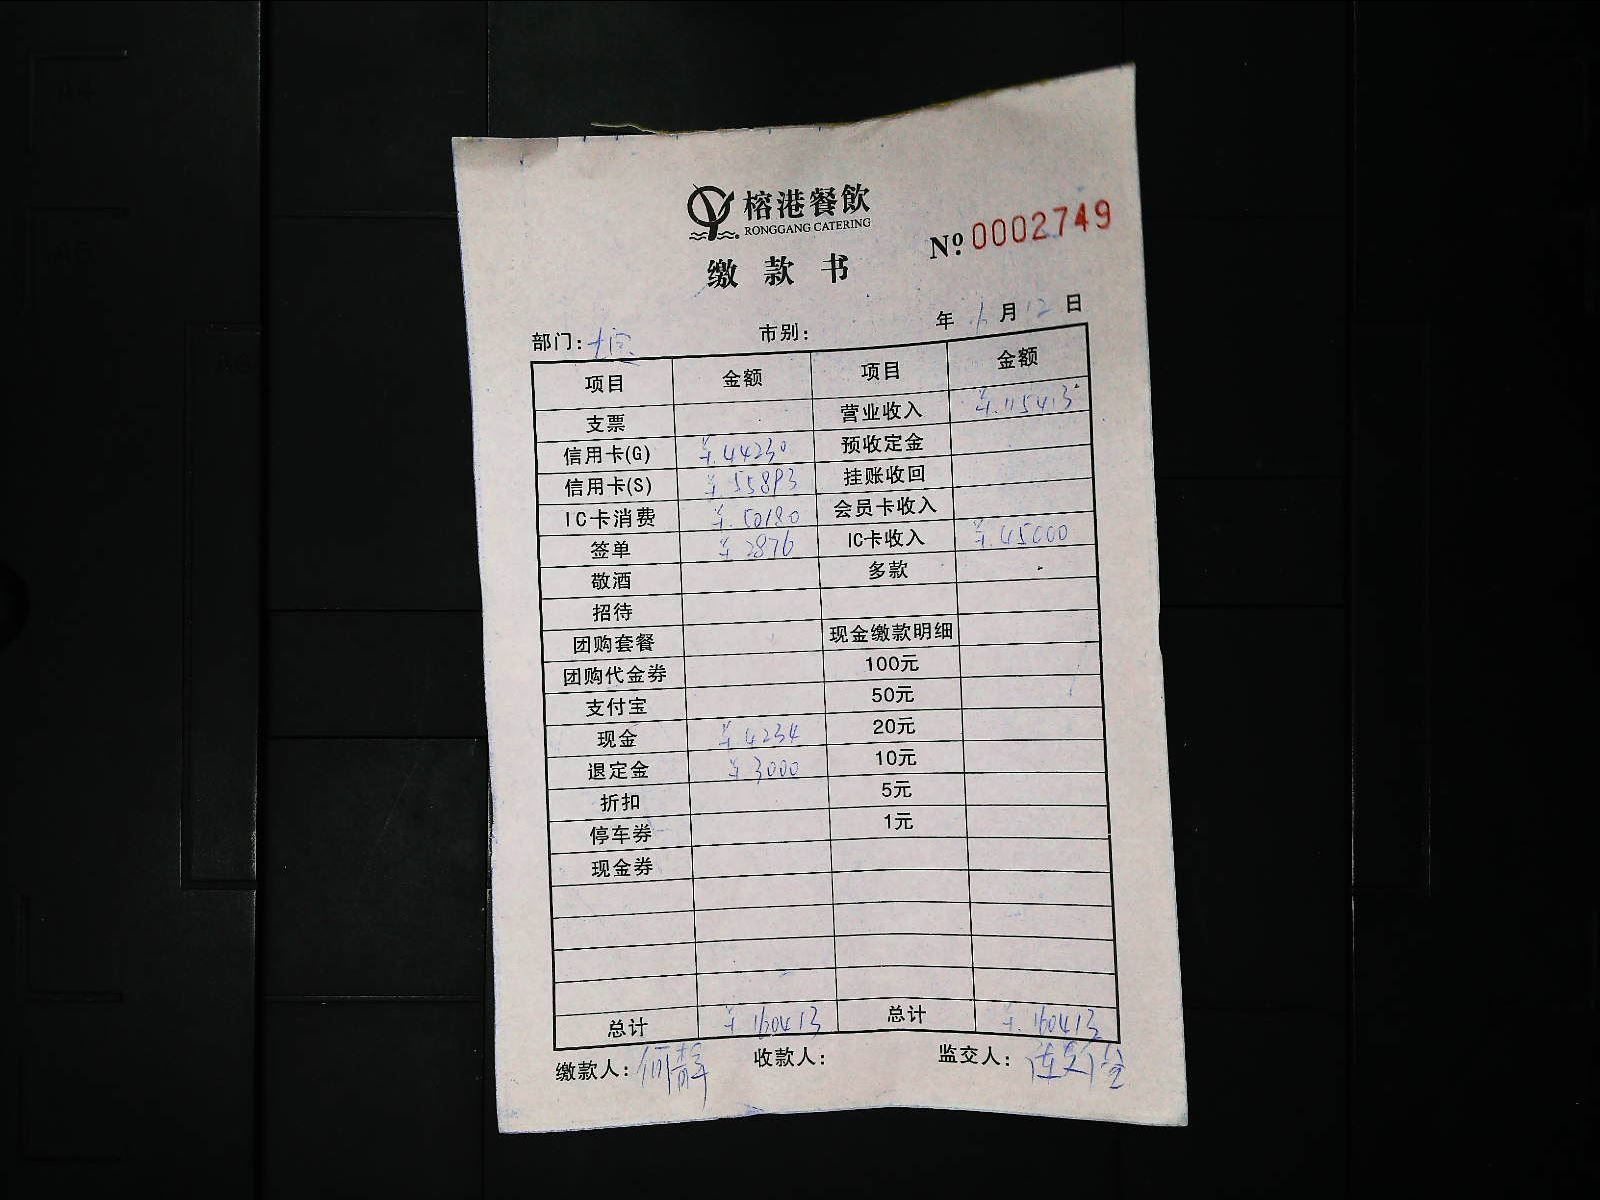 榕港餐飲
RONGGANG CATERING
缴款书
Nº 0002749
年 月 12 日
部门: 市别:
项目 金额 项目 金额
支票 营业收入 ¥.115413
信用卡(G) ¥.44230 预收定金
信用卡(S) ¥.55893 挂账收回
IC卡消费 ¥.50180 会员卡收入
签单 ¥2876 IC卡收入 ¥.45000
敬酒 多款
招待
团购套餐 现金缴款明细
团购代金券 100元
支付宝 50元
现金 ¥4234 20元
退定金 ¥3000 10元
折扣 5元
停车券 1元
现金券
总计 ¥160413 总计 ¥.160413
缴款人: 何静 收款人: 监交人: